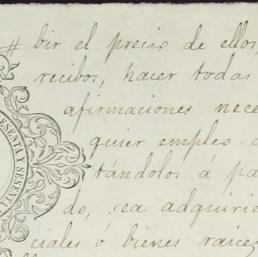 # bir el precio de ellos,
recibos, hacer todas
afirmaciones nece
quier empleo
tándolos á pa
do, sea adquirio
ciales ó bienes raíces
ESENTA Y SESENT